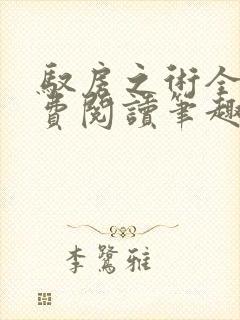 馭房之術全
費閱讀筆趣
李鷺雅